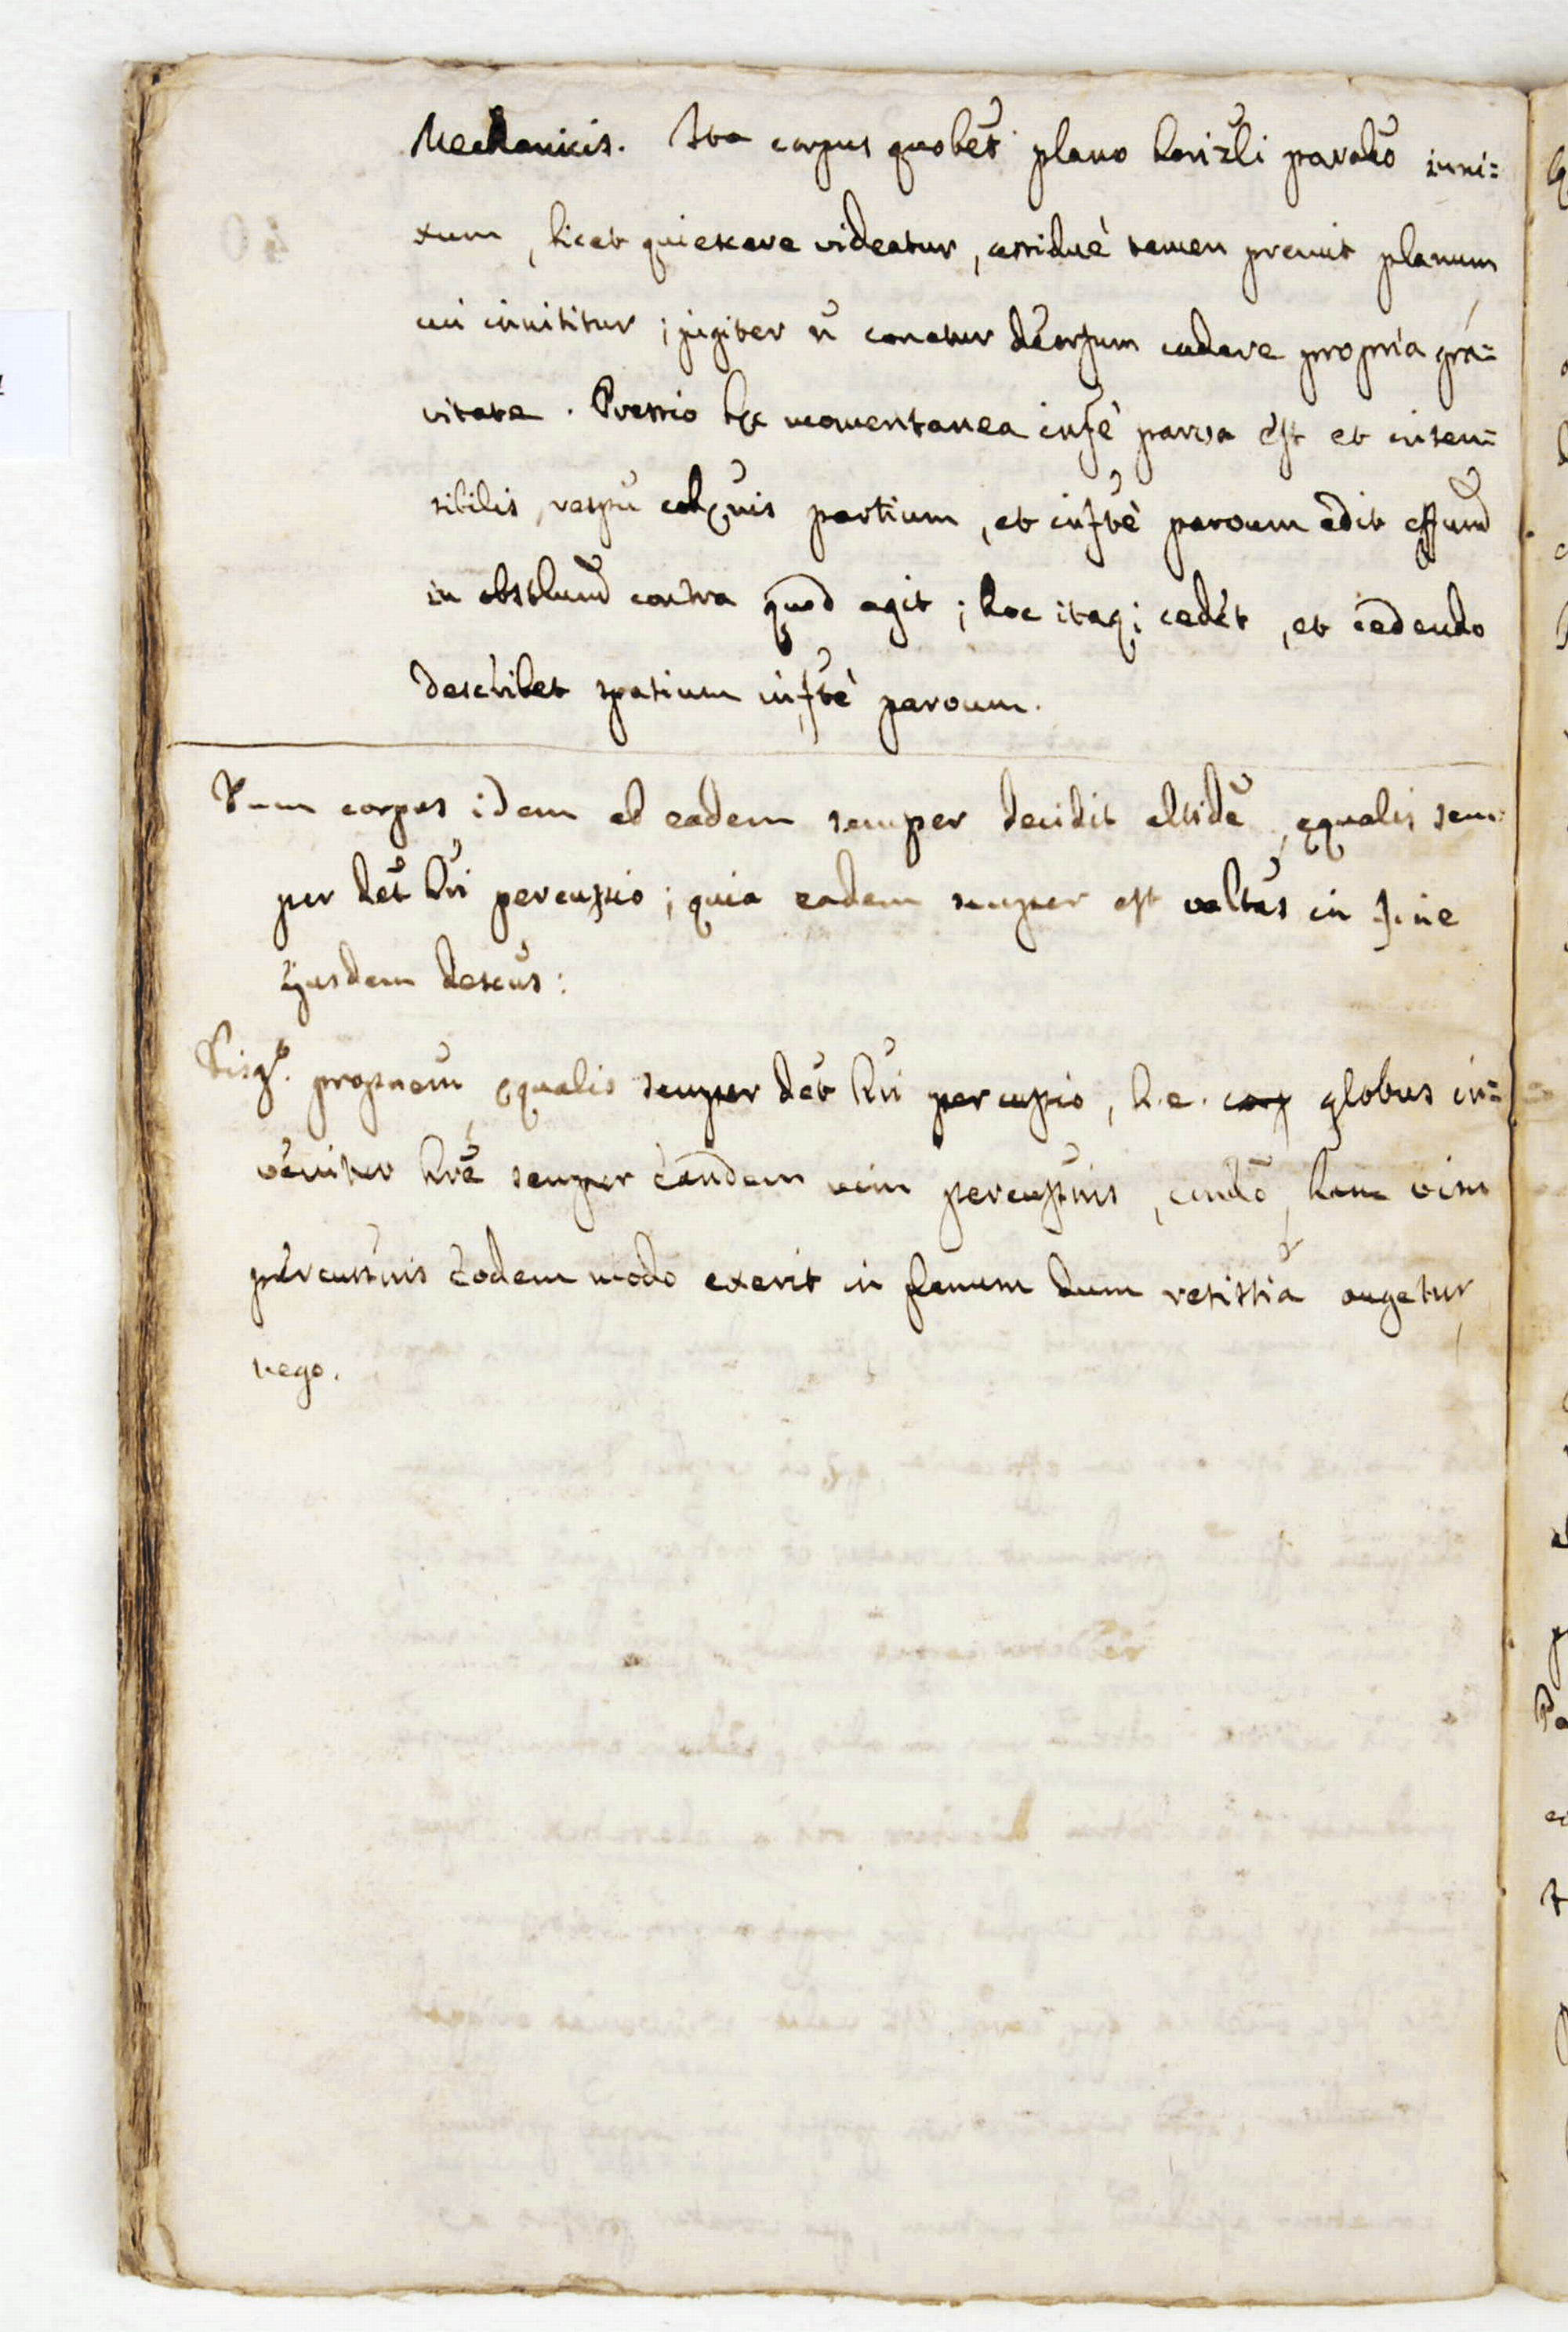 Mechanicis. Ita corpus quodlet plano horizli paralo inni=
xum, licet quiescere videatur, assiduè tamen premit planum
cui innititur; jugiter n̄ conatur deorsum cadere propria gra=
vitate. Pressio hęc momentanea infe parva est et insen=
sibilis, respu partium, et infte parvum edit effum
in obstlum contra quod agit; hoc itaq; cedet, et cedendo
describet spatium infte parvum.
Dum corpus idem ab eadem semper decidit altide, ęqualis sem=
per det hri percussio; quia eadem semper est veltas in fine
ejusdem descus:
Disgo. propnem ęqualis semper det hri percussio, h.e. globus in=
venitur hre semper eandem vim percussnis, hanc vim
percussnis eodem modo exerit in planum dum resistia augetur
nego.